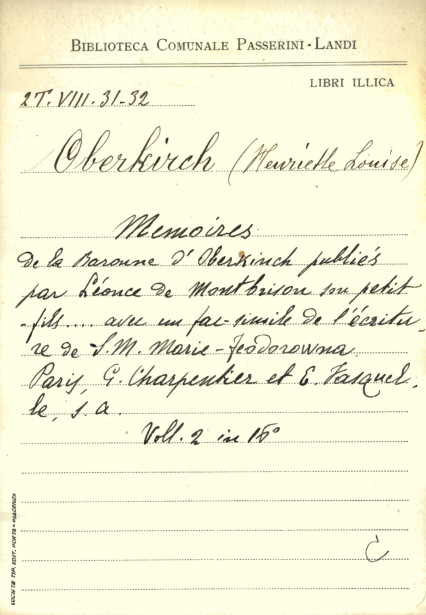 BIBLIOTECA COMUNALE PASSERINI-LANDI
LIBRI ILLICA
2T.VIII.31-32
Oberkirch (Henriette Louise)
Memoires
de la Baronne d'Oberkinch publiés
par Léonce de Montbrison son petit
-fils.... avec un fac-simile de l'écritu-
re de S.M. Marie-Feodorowna.
Paris, G. Charpentier et E. Fasquel-
le, s.a.
Voll. 2 in 16°
C
SOCIETÀ TIP. EDIT. PORTA - PIACENZA